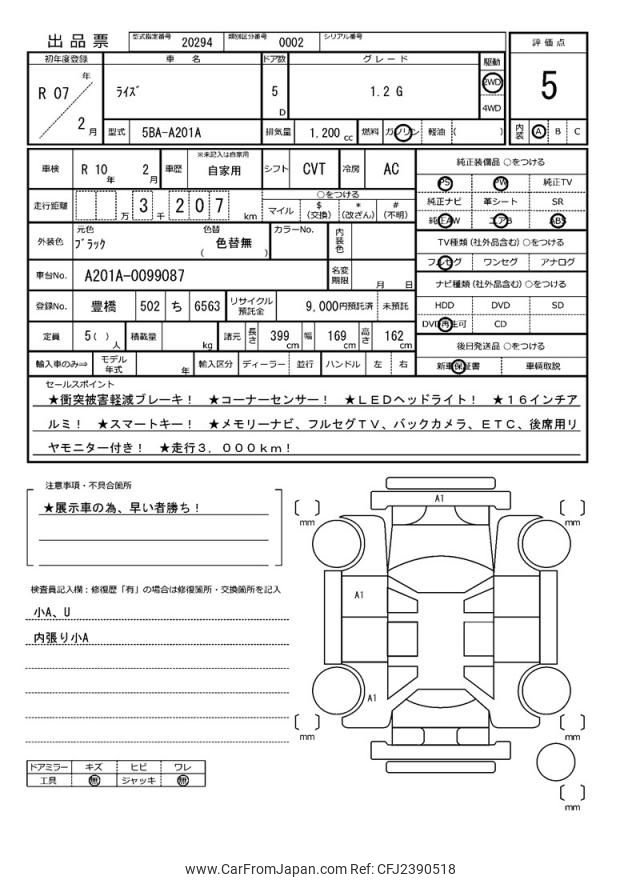 出品票
型式指定番号 20294 類別区分番号 0002 シリアル番号
評価点
5
内装 A B C
初年度登録 車名 ドア数 グレード 駆動
R 07 年 2 月
ﾗｲｽﾞ
5 D
1.2 G
2WD
4WD
型式 5BA-A201A 排気量 1.200 cc 燃料 ガソリン 軽油 ( )
車検 R 10 年 2 月 車歴 ※未記入は自家用 自家用 シフト CVT 冷房 AC
走行距離 万 3 千 2 0 7 km
○をつける
マイル $(交換) *(改ざん) #(不明)
外装色 元色 ﾌﾞﾗｯｸ 色替 ( 色替無 ) カラーNo. 内装色
車台No. A201A-0099087 名変期限 月 日
登録No. 豊橋 502 ち 6563 リサイクル預託金 9,000円預託済 未預託
定員 5 ( ) 人 積載量 kg 諸元 長さ 399 cm 幅 169 cm 高さ 162 cm
輸入車のみ⇒ モデル年式 年 輸入区分 ディーラー 並行 ハンドル 左 右
純正装備品 ○をつける
PS PW 純正TV
純正ナビ 革シート SR
純正AW エアB ABS
TV種類 (社外品含む) ○をつける
フルセグ ワンセグ アナログ
ナビ種類 (社外品含む) ○をつける
HDD DVD SD
DVD再生可 CD
後日発送品 ○をつける
新車保証書 車輌取説
セールスポイント
★衝突被害軽減ブレーキ! ★コーナーセンサー! ★LEDヘッドライト! ★16インチア
ルミ! ★スマートキー! ★メモリーナビ、フルセグTV、バックカメラ、ETC、後席用リ
ヤモニター付き! ★走行3,000km!
注意事項・不具合箇所
★展示車の為、早い者勝ち!
検査員記入欄：修復歴「有」の場合は修復箇所・交換箇所を記入
小A、U
内張り小A
ドアミラー キズ ヒビ ワレ
工具 無 ジャッキ 無
A1
mm
mm
A1
A1
mm
mm
mm
www.CarFromJapan.com Ref: CFJ2390518